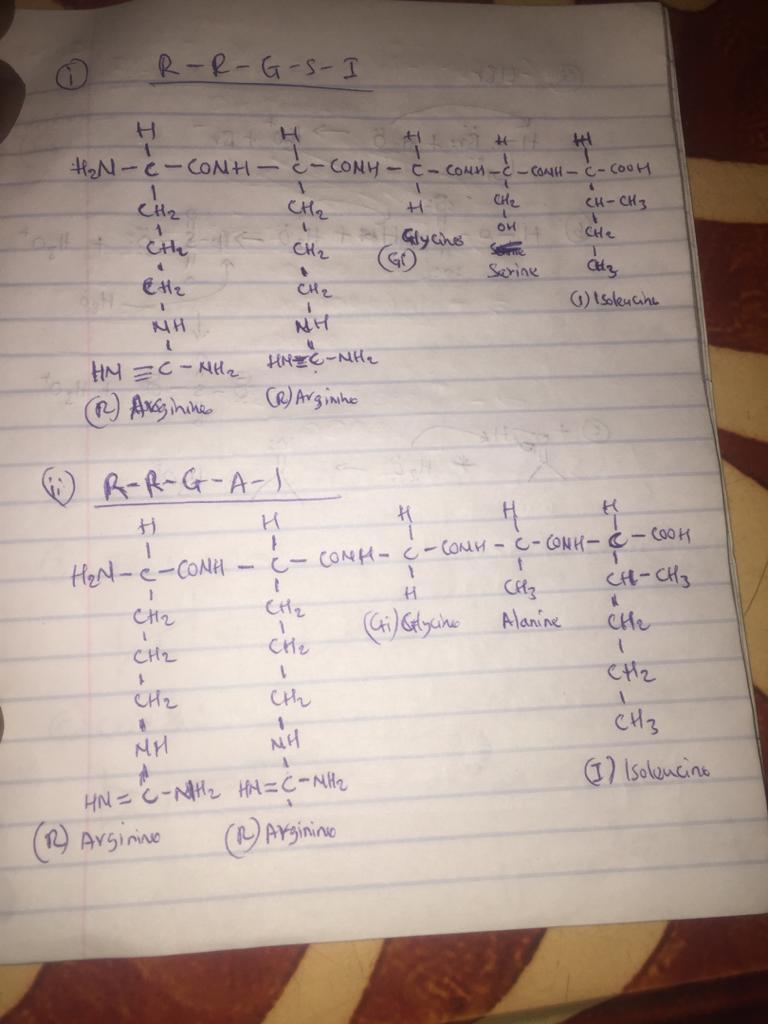 i R-R-G-S-I
H H H H H
H₂N-C-CONH-C-CONH-C-CONH-C-CONH-C-COOH
CH₂ CH₂ H CH₂ CH-CH₃
CH₂ CH₂ Glycine OH CH₂
CH₂ CH₂ (G) Serine CH₃
NH NH (I) Isoleucine
HN≡C-NH₂ HN=C-NH₂
(R) Arginine (R) Arginine
ii R-R-G-A-I
H H H H H
H₂N-C-CONH-C-CONH-C-CONH-C-CONH-C-COOH
CH₂ CH₂ H CH₃ CH-CH₃
CH₂ CH₂ (G) Glycine Alanine CH₂
CH₂ CH₂ CH₂
NH NH CH₃
HN=C-NH₂ HN=C-NH₂ (I) Isoleucine
(R) Arginine (R) Arginine